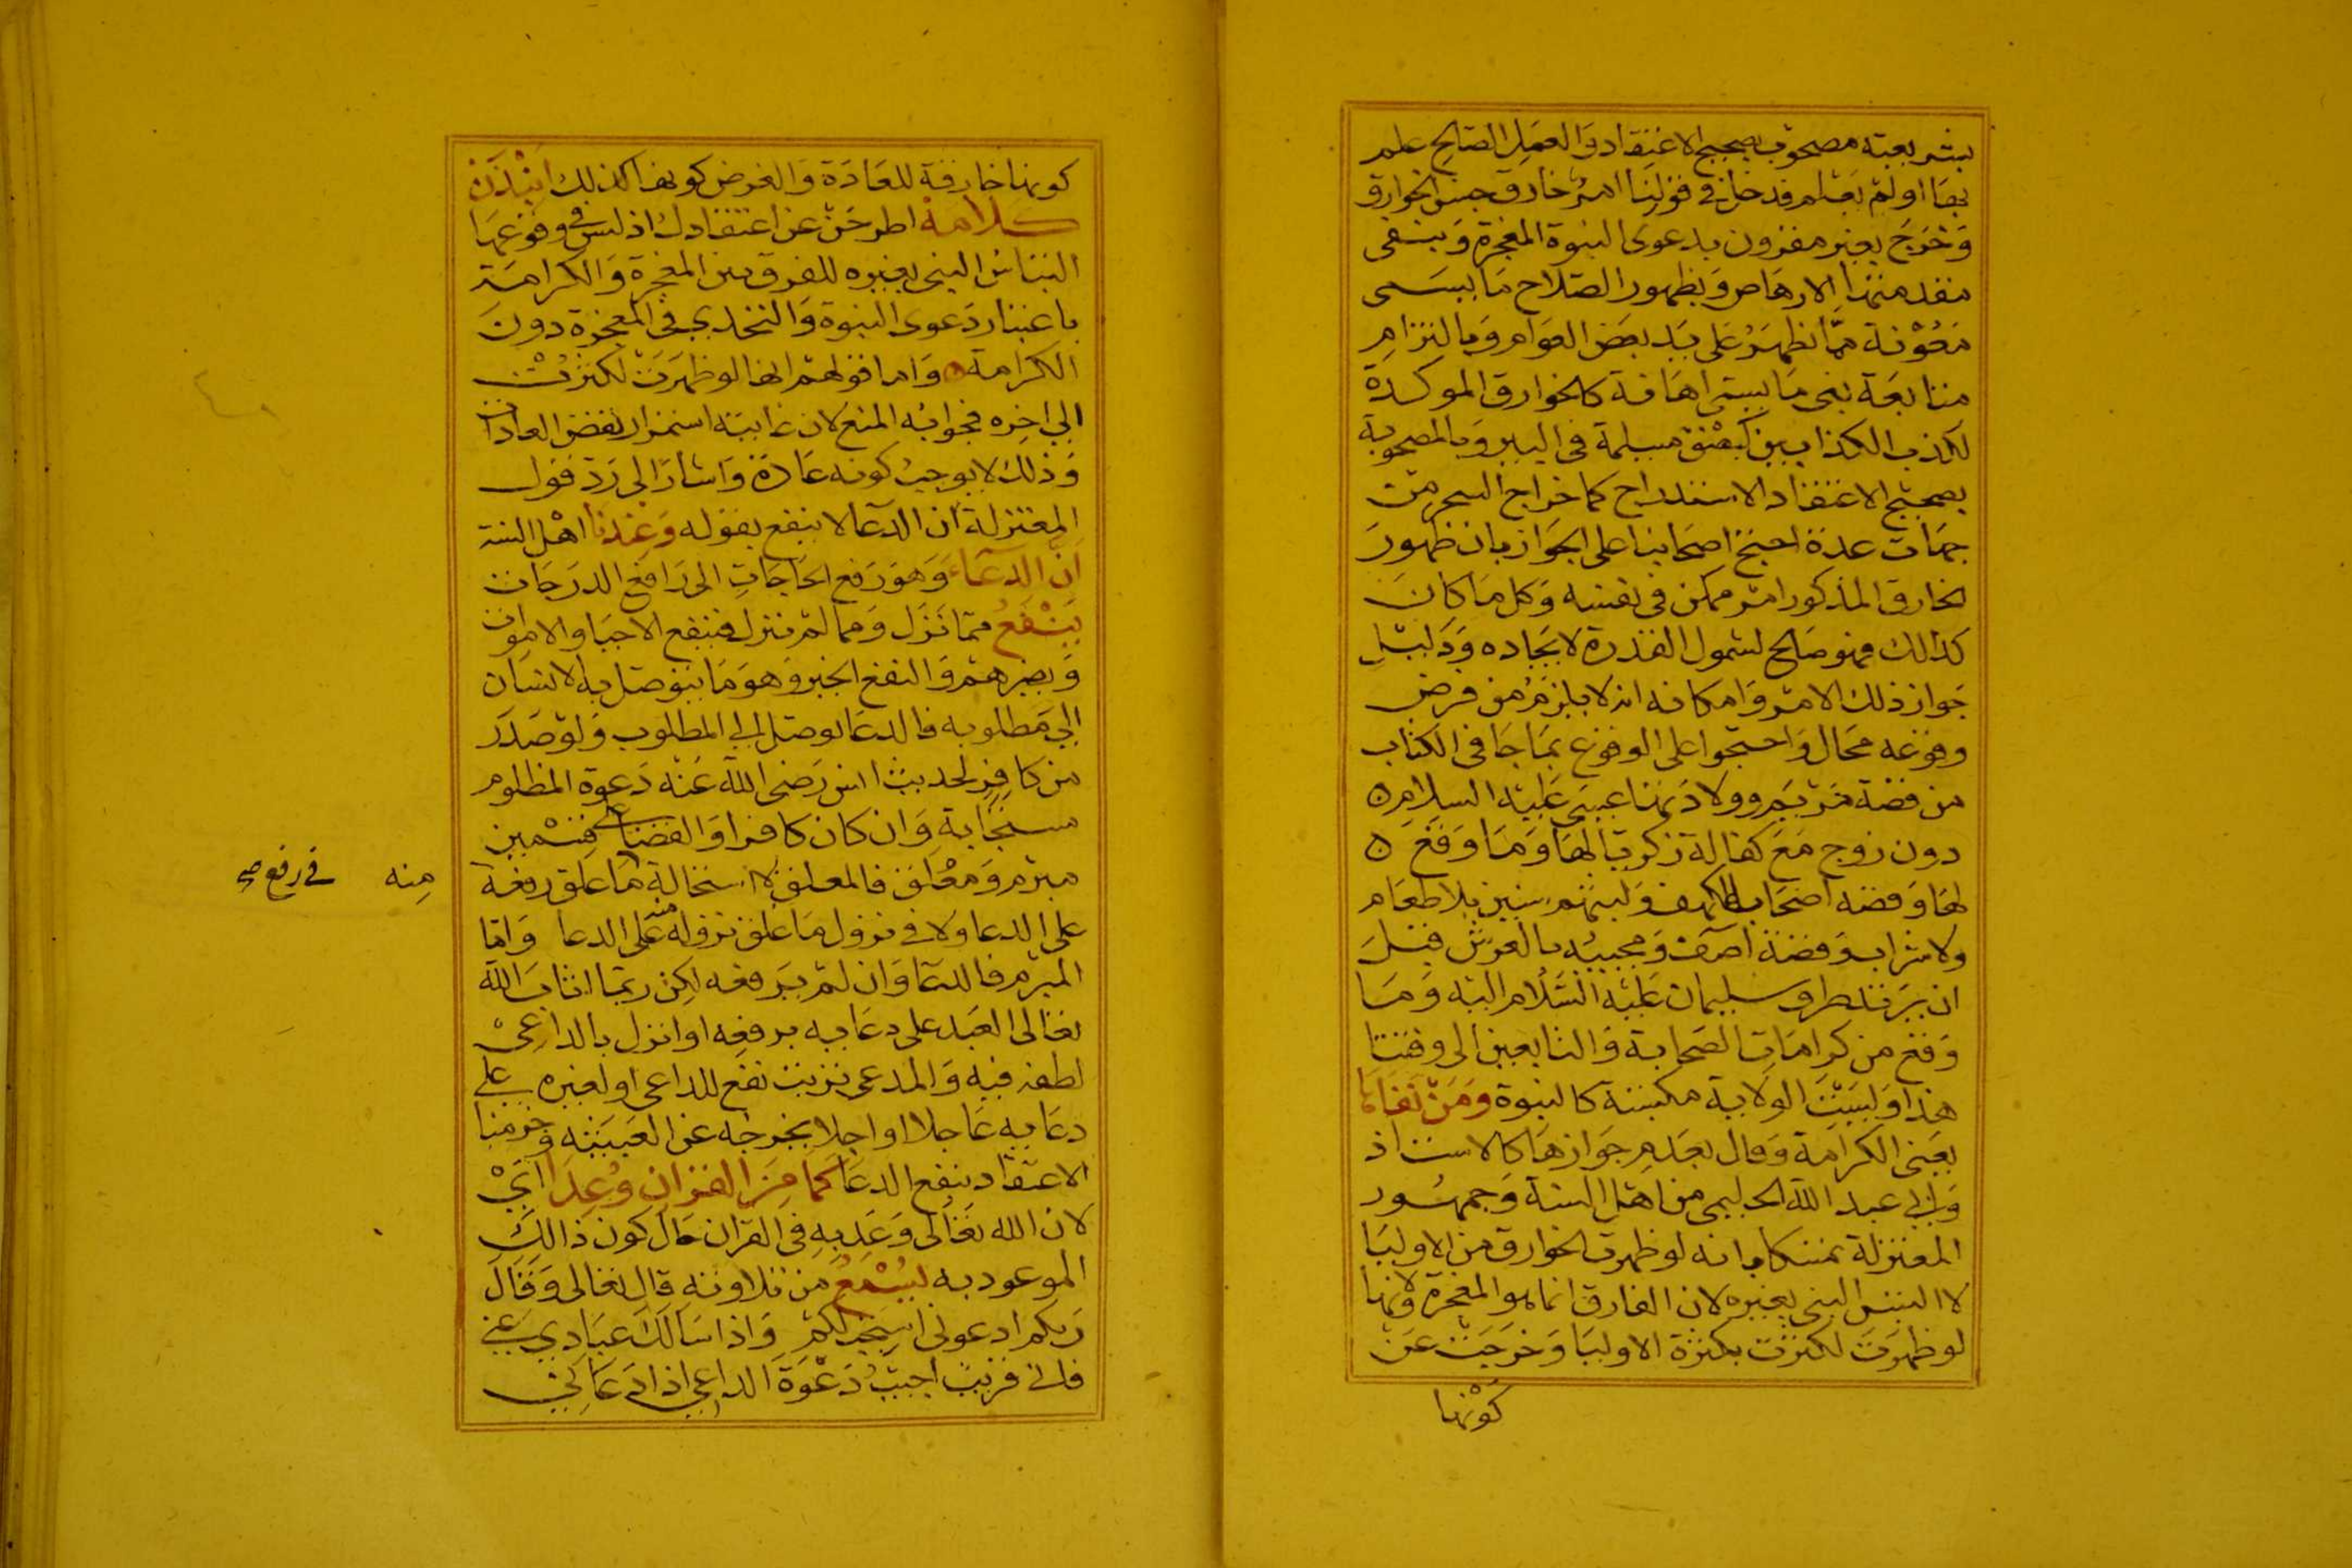 بشريعته مصحوب بصحيح الاعتقاد والعمل الصالح علم
بها او لم يعلم فدخل في قولنا امر خارق جنس الخوارق
وخرج بغير مقرون بدعوى النبوة المعجزة وبنفى
مقدمتها الارهاص وبظهور الصلاح ما يسمى
معونة مما يظهر على يد بعض العوام وبالتزام
متابعة نبى ما يسمى اهانة كالخوارق الموكدة
لكذب الكذابين كبصق مسيلمة في البير وبالمصحوبية
بصحيح الاعتقاد الاستدراج كما خراج السحر من
جهات عدة احتج اصحابنا على الجواز بان ظهور
الخارق المذكور امر ممكن في نفسه وكل ما كان
كذالك فهو صالح لشمول القدرة لايجاده ودليل
جواز ذلك الامر وامكانه انه لا يلزم من فرض
وقوعه محال واحتجوا على الوقوع بما جا في الكتاب
من قصة مريم وولادتها عيسى عليه السلام ه
دون زوج مع كفالة زكريا لها وما وقع ه
لها وقصة اصحاب الكهف ولبثهم سنين بلا طعام
ولا شراب وقصة آصف ومجيبه بالعرش قبل
ان يرتد طرف سليمان عليه السلام اليه وما
وقع من كرامات الصحابة والتابعين الى وقتنا
هذا وليست الولاية مكتسبة كالنبوة ومن نفاها
يعنى الكرامة وقال بعدم جوازها كالاستاذ
وابي عبد الله الحليمى من اهل السنة وجمهور
المعتزلة تمسكا بانه لو ظهرت الخوارق من الاوليا
لا التبس النبى بغيره لان الفارق انما هو المعجزة ولانها
لو ظهرت لكثرت بكثرة الاوليا وخرجت عن
كونها
كونها خارقة للعادة والفرض كونها كذلك انبذن
كلامه اطرحن عن اعتقادك اذ ليس في وقوعها
التباس النبى بغيره للفرق بين المعجزة والكرامة
باعتبار دعوى النبوة والتحدي في المعجزة دون
الكرامة ه واما قولهم انها لو ظهرت لكثرت
الي اخره فجوابه المنع لان غايته استمرار نقض العادات
وذلك لا يوجب كونه عادة واشار الى رد قول
المعتزلة ان الدعا لا ينفع بقوله وعندنا اهل السنة
ان الدعاء وهو رفع الحاجات الى رافع الدرجات
ينفع مما نزل ومما لم ينزل فينفع الاحيا والاموات
ويضرهم والنفع الخير وهو ما يتوصل به الانسان
الي مطلوبه فالدعا يوصل الي المطلوب ولو صدر
من كافر لحديث انس رضى الله عنه دعوة المظلوم
مستجابة وان كان كافرا والقضا على قسمين
مبرم ومعلق فالمعلق لا استحالة ما علق رفعه
منه في رفع صح
على الدعا ولا في نزول ما علق نزوله منه على الدعا واما
المبرم فالدعا وان لم يرفعه لكن ربما اثاب الله
تعالى العبد على دعايه برفعه او انزل بالداعى
لطفه فيه والمدعى ترتب نفع للداعى او لغيره على
دعايه عاجلا او اجلا يخرجه عن العبثية وجزمنا
الاعتقاد بنفع الدعا كما من القران وعدا اي
لان الله تعالى وعد به في القران حال كون ذالك
الموعود به يسمع من تلاوته قال تعالى وقال
ربكم ادعونى استجب لكم واذا سالك عبادي عنى
فانى قريب اجيب دعوة الداعي اذا دعانى